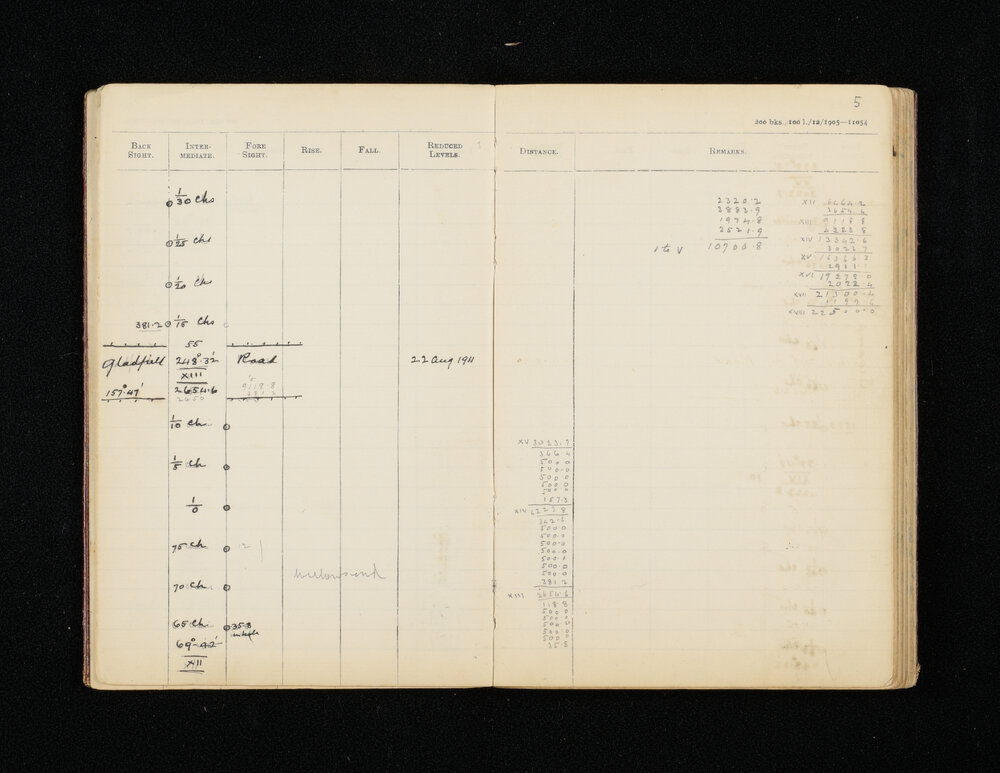 5
200 bks./100 l./12/1905—11054
BACK SIGHT.
INTER-MEDIATE.
FORE SIGHT.
RISE.
FALL.
REDUCED LEVELS.
DISTANCE.
REMARKS.
1/30 Chs
1/25 Chs
1/20 Chs
381.2 1/15 Chs
55
Gladfield 248°.32' Road 22 Aug 1911
XIII
157°.47' 2654.6 9118.8
2650 381.2
1/10 Ch.
1/5 Ch
1/0
75 Ch 12
70 Ch.
65 Ch. 35.8
69°.42'
XII
2320.2
2883.9
1974.8
3521.9
1 to V 10700.8
XII 6464.2
2654.6
XIII 9118.8
4223.8
XIV 13342.6
3023.7
XV 16366.3
2911.
XVI 19278.0
2022.4
XVII 21300.4
1199.6
XVIII 22500.0
XV 3023.7
366.4
500.0
500.0
500.0
500.0
500.0
157.3
XIV 4223.8
342.6
500.0
500.0
500.0
500.0
500.0
500.0
381.2
XIII 2654.6
118.8
500.0
500.0
500.0
500.0
500.0
35.8